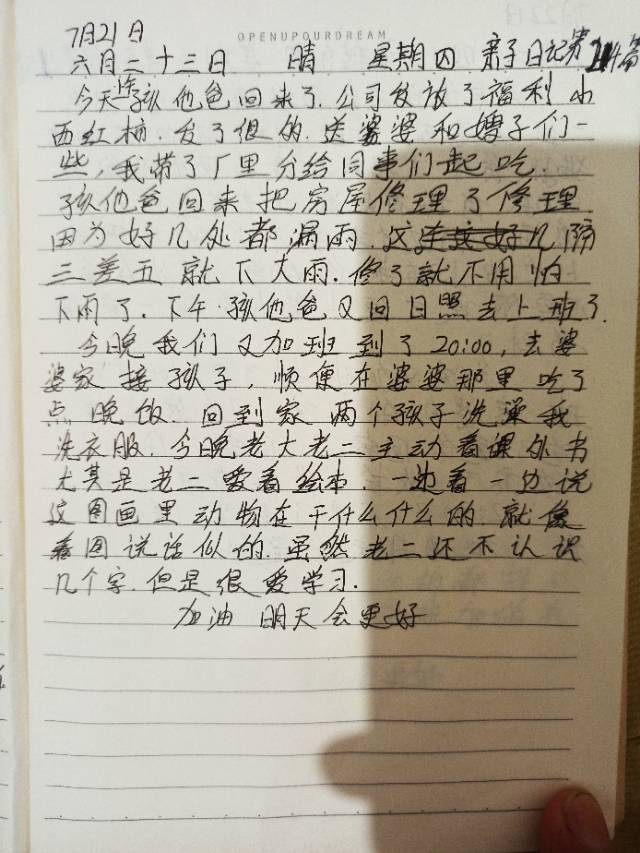 OPENUPOURDREAM
7月21日
六月二十三日 晴 星期四 亲子日记第 篇
今天 孩他爸回来了.公司发放了福利小
西红柿.发了很的.送婆婆和嫂子们一
些,我带了厂里分给同事们起吃.
孩他爸回来把房屋修理了修理
因为好几处都漏雨.这 隔
三差五就下大雨.修了就不用怕
下雨了.下午.孩他爸又回日照去上班了.
今晚我们又加班到了20:00,去婆
婆家接孩子,顺便在婆婆那里吃了
点晚饭.回到家两个孩子洗澡我
洗衣服.今晚老大老二主动看课外书
尤其是老二爱看绘本.一边看一边说
这图画里动物在干什么什么的.就像
看图说话似的.虽然老二还不认识
几个字.但是很爱学习.
加油 明天会更好